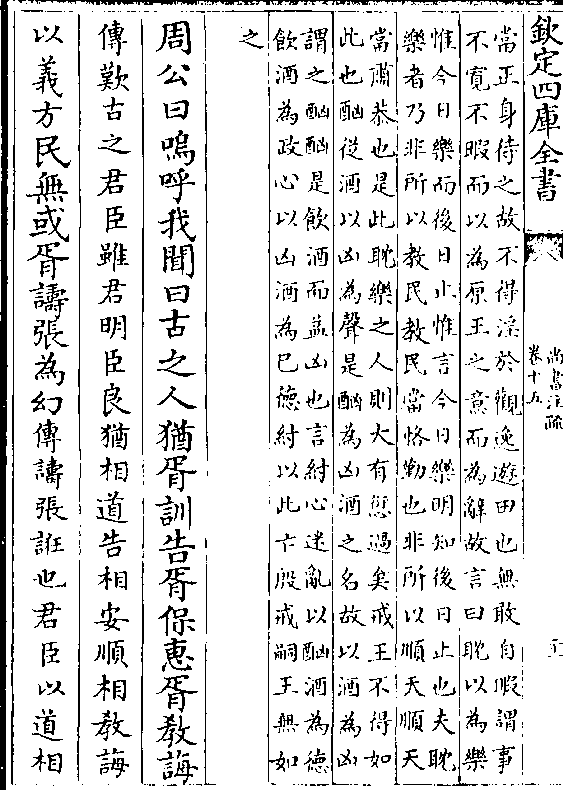 欽定四庫全書
尚書注疏
卷十五
當正身待之故不得淫於觀逸遊田也無敢自暇謂事
不寛不暇而以為原王之意而為辭故言曰耽以為樂
惟今日樂而後日止惟言今日樂明知後日止也夫耽
樂者乃非所以教民教民當恪勤也非所以順天順天
當肅恭也是此耽樂之人則大有愆過矣戒王不得如
此也酗從酒以凶為聲是酗為凶酒之名故以酒為凶
謂之酗酗是飲酒而益凶也言紂心迷亂以酗酒為德
飲酒為政心以凶酒為已德紂以此亡殷戒嗣王無如
之
周公曰嗚呼我聞曰古之人猶胥訓告胥保惠胥教誨
傳歎古之君臣雖君明臣良猶相道告相安順相教誨
以義方民無或胥譸張為幻傳譸張誑也君臣以道相